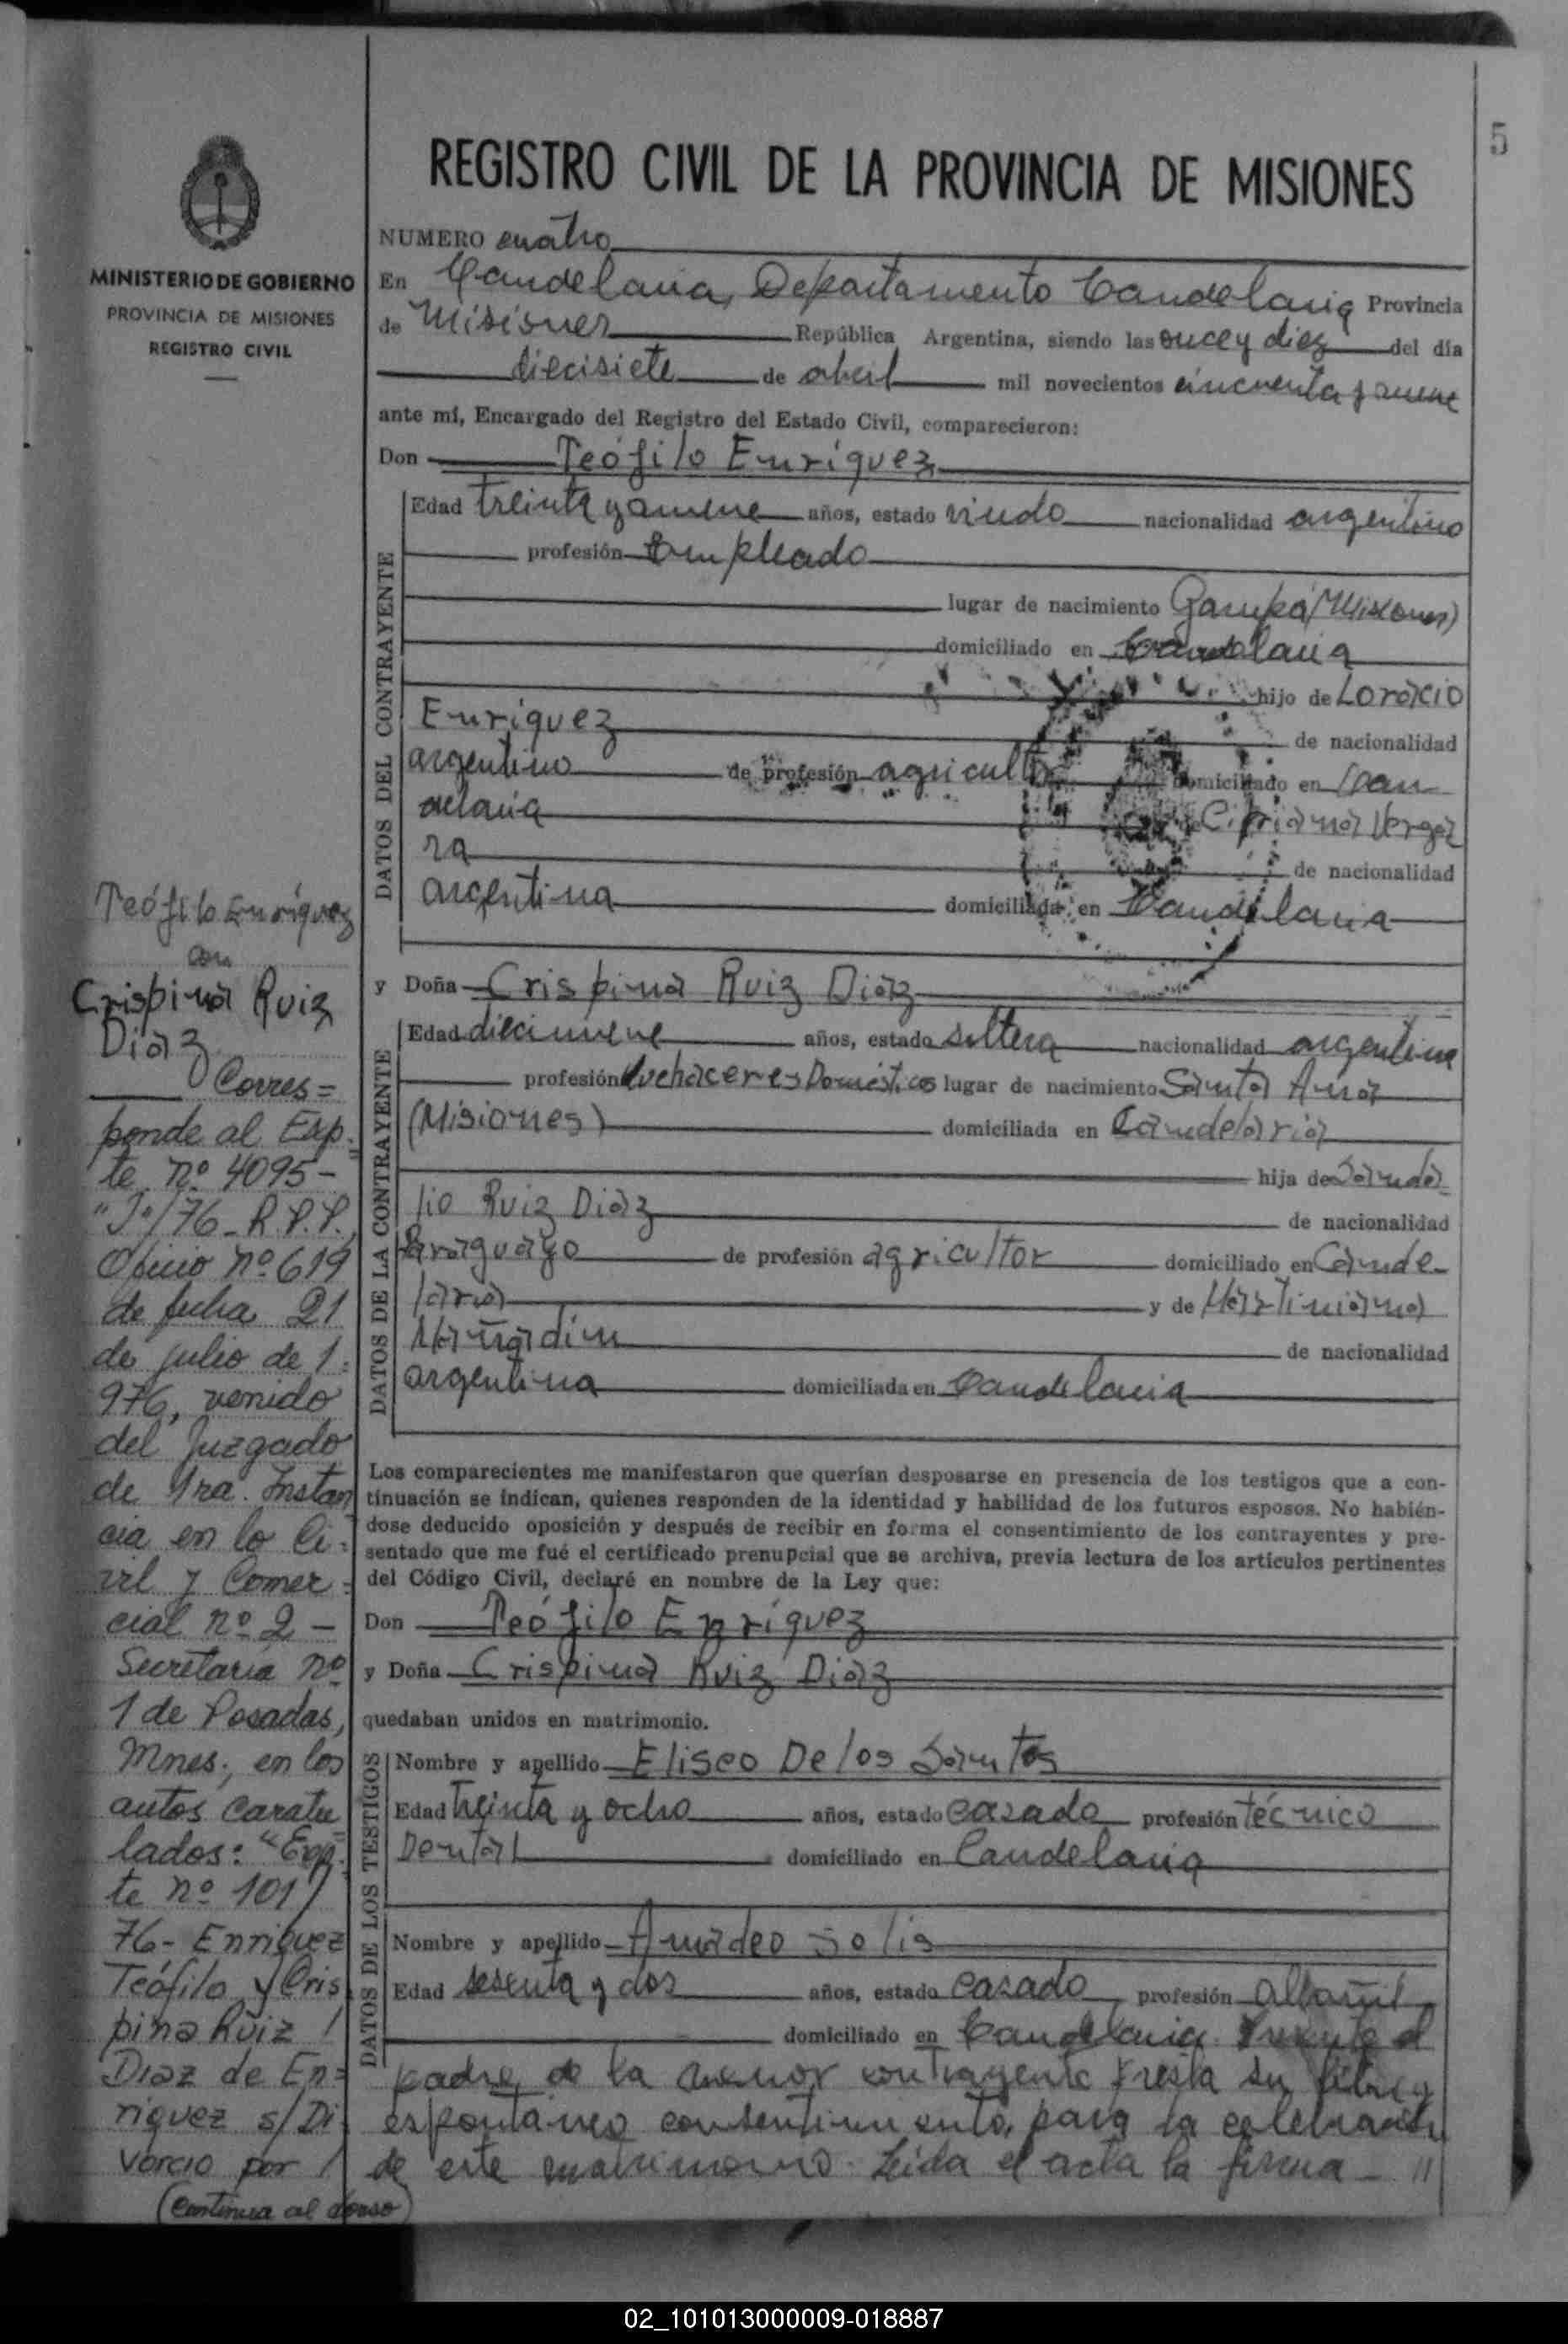 5
REGISTRO CIVIL DE LA PROVINCIA DE MISIONES
MINISTERIO DE GOBIERNO
PROVINCIA DE MISIONES
REGISTRO CIVIL
NUMERO cuatro
En Candelaria, Departamento Candelaria Provincia
de Misiones República Argentina, siendo las once y diez del día
diecisiete de abril mil novecientos cincuenta y nueve
ante mí, Encargado del Registro del Estado Civil, comparecieron:
Don Teófilo Enríquez
DATOS DEL CONTRAYENTE
Edad treinta y nueve años, estado viudo nacionalidad argentino
profesión Empleado
lugar de nacimiento Garupá (Misiones)
domiciliado en Candelaria
hijo de Loracio
Enriquez de nacionalidad
argentino de profesión agricultor domiciliado en Can
delaria Cipriana Verga
ra de nacionalidad
argentina domiciliada en Candelaria
y Doña Crispina Ruiz Diaz
DATOS DE LA CONTRAYENTE
Edad diecinueve años, estado soltera nacionalidad argentina
profesión Quehaceres Domésticos lugar de nacimiento Santa Ana
(Misiones) domiciliada en Candelaria
hija de Sanda
lio Ruiz Diaz de nacionalidad
Paraguayo de profesión agricultor domiciliado en Cande
laria y de Martiniana
de nacionalidad
argentina domiciliada en Candelaria
Los comparecientes me manifestaron que querían desposarse en presencia de los testigos que a con-
tinuación se indican, quienes responden de la identidad y habilidad de los futuros esposos. No habién-
dose deducido oposición y después de recibir en forma el consentimiento de los contrayentes y pre-
sentado que me fué el certificado prenupcial que se archiva, previa lectura de los artículos pertinentes
del Código Civil, declaré en nombre de la Ley que:
Don Teófilo Enríquez
y Doña Crispina Ruiz Diaz
quedaban unidos en matrimonio.
DATOS DE LOS TESTIGOS
Nombre y apellido Eliseo De los Santos
Edad treinta y ocho años, estado casado profesión técnico
Dental domiciliado en Candelaria
Nombre y apellido Amadeo Solis
Edad sesenta y dos años, estado casado, profesión albañil
domiciliado en Candelaria. Presente el
padre de la menor contrayente presta su libre y
espontáneo consentimiento, para la celebración
de este matrimonio. Leída el acta la firma - //
Teófilo Enríquez
con
Crispina Ruiz
Diaz
Corres=
ponde al Exp=
te. nº 4095-
"J"/76-R.P.P.,
Oficio nº 619
de fecha 21
de julio de 1=
976, venido
del Juzgado
de 1ra. Instan
cia en lo Ci=
vil y Comer=
cial nº 2 -
Secretaría nº
1 de Posadas,
Mnes; en los
autos caratu
lados: "Exp=
te nº 101/
76- Enriquez
Teófilo y Cris
pina Ruiz /
Diaz de En=
riquez s/Di
vorcio por /
(Continua al dorso)
02_101013000009-018887